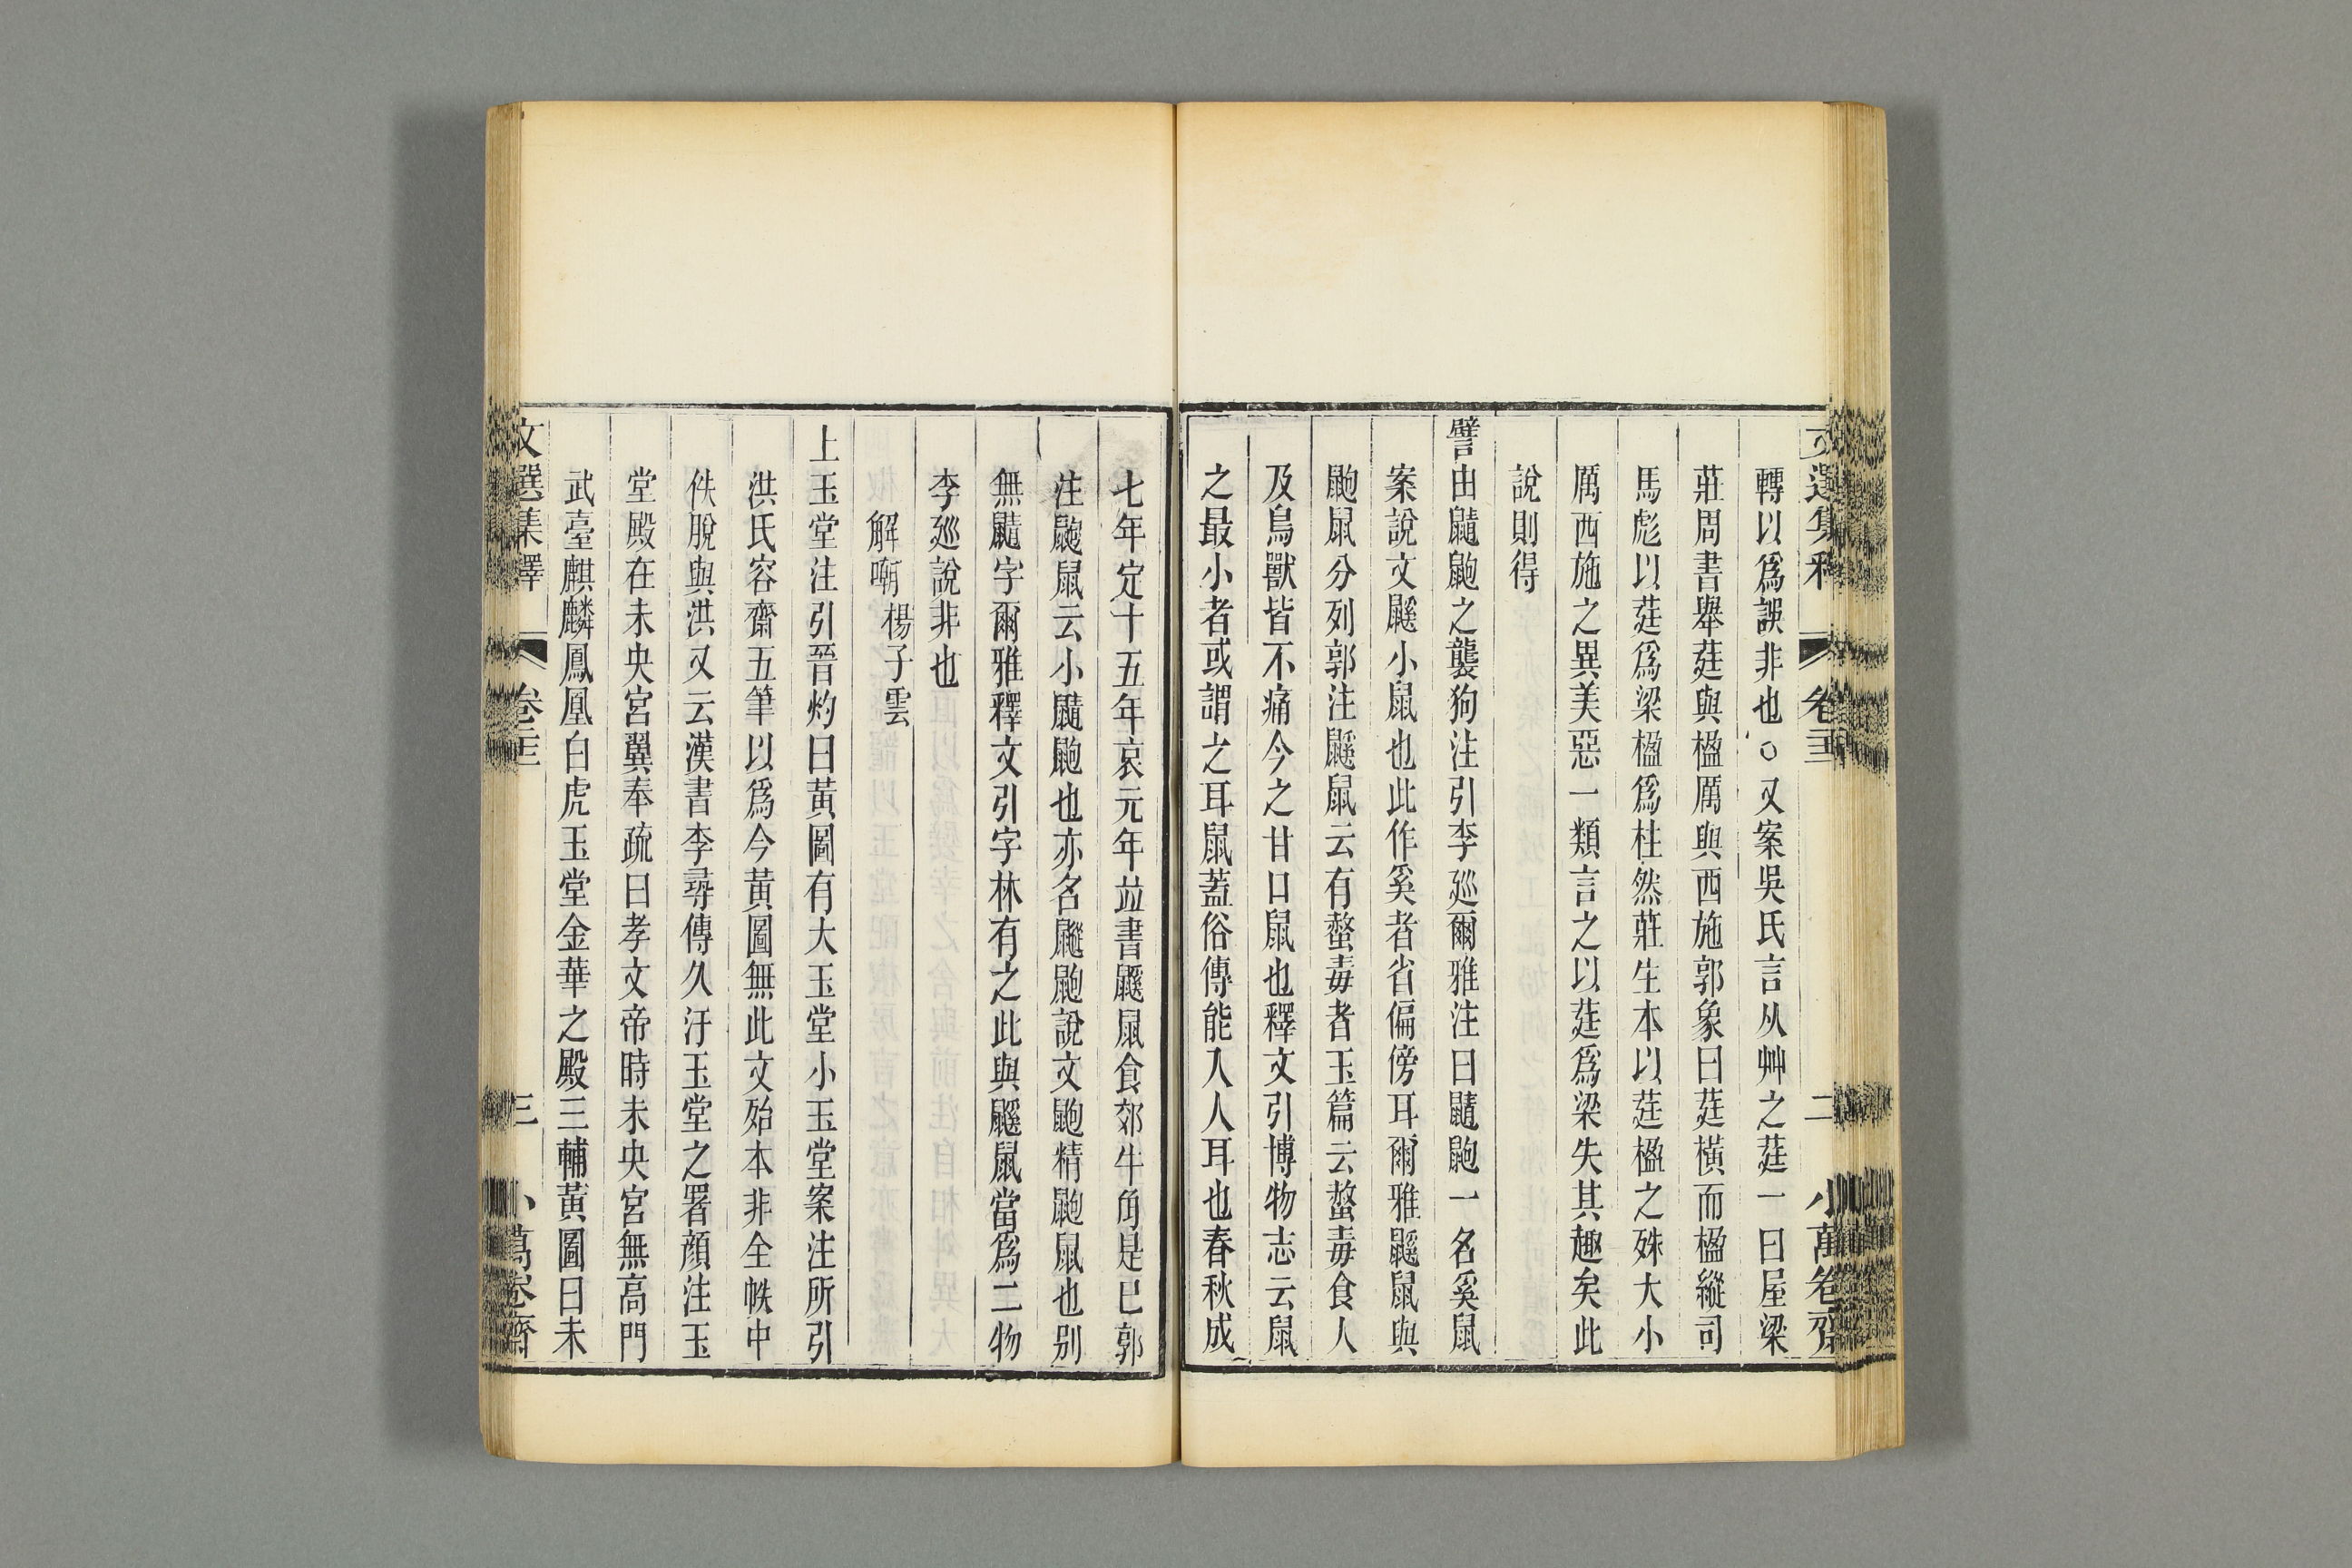 文選集釋 卷二十三 二 小萬卷齋
轉以爲誤非也○又案吳氏言从艸之莛一曰屋梁
莊周書舉莛與楹厲與西施郭象曰莛橫而楹縱司
馬彪以莛爲梁楹爲柱然莊生本以莛楹之殊大小
厲西施之異美惡一類言之以莛爲梁失其趣矣此
說則得
譬由鼱鼩之襲狗注引李廵爾雅注曰鼱鼩一名奚鼠
案說文鼷小鼠也此作奚者省偏傍耳爾雅鼷鼠與
鼩鼠分列郭注鼷鼠云有螫毒者玉篇云螫毒食人
及鳥獸皆不痛今之甘口鼠也釋文引博物志云鼠
之最小者或謂之耳鼠蓋俗傳能入人耳也春秋成
七年定十五年哀元年並書鼷鼠食郊牛角是已郭
注鼩鼠云小鼱鼩也亦名鼩說文鼩精鼩鼠也別
無鼱字爾雅釋文引字林有之此與鼷鼠當爲二物
李廵說非也
解嘲 楊子雲
上玉堂注引晉灼曰黃圖有大玉堂小玉堂案注所引
洪氏容齋五筆以爲今黃圖無此文殆本非全帙中
佚脫與洪又云漢書李尋傳久汙玉堂之署顏注玉
堂殿在未央宮翼奉疏曰孝文帝時未央宮無高門
武臺麒麟鳳凰白虎玉堂金華之殿三輔黃圖曰未
文選集釋 卷二十三 三 小萬卷齋